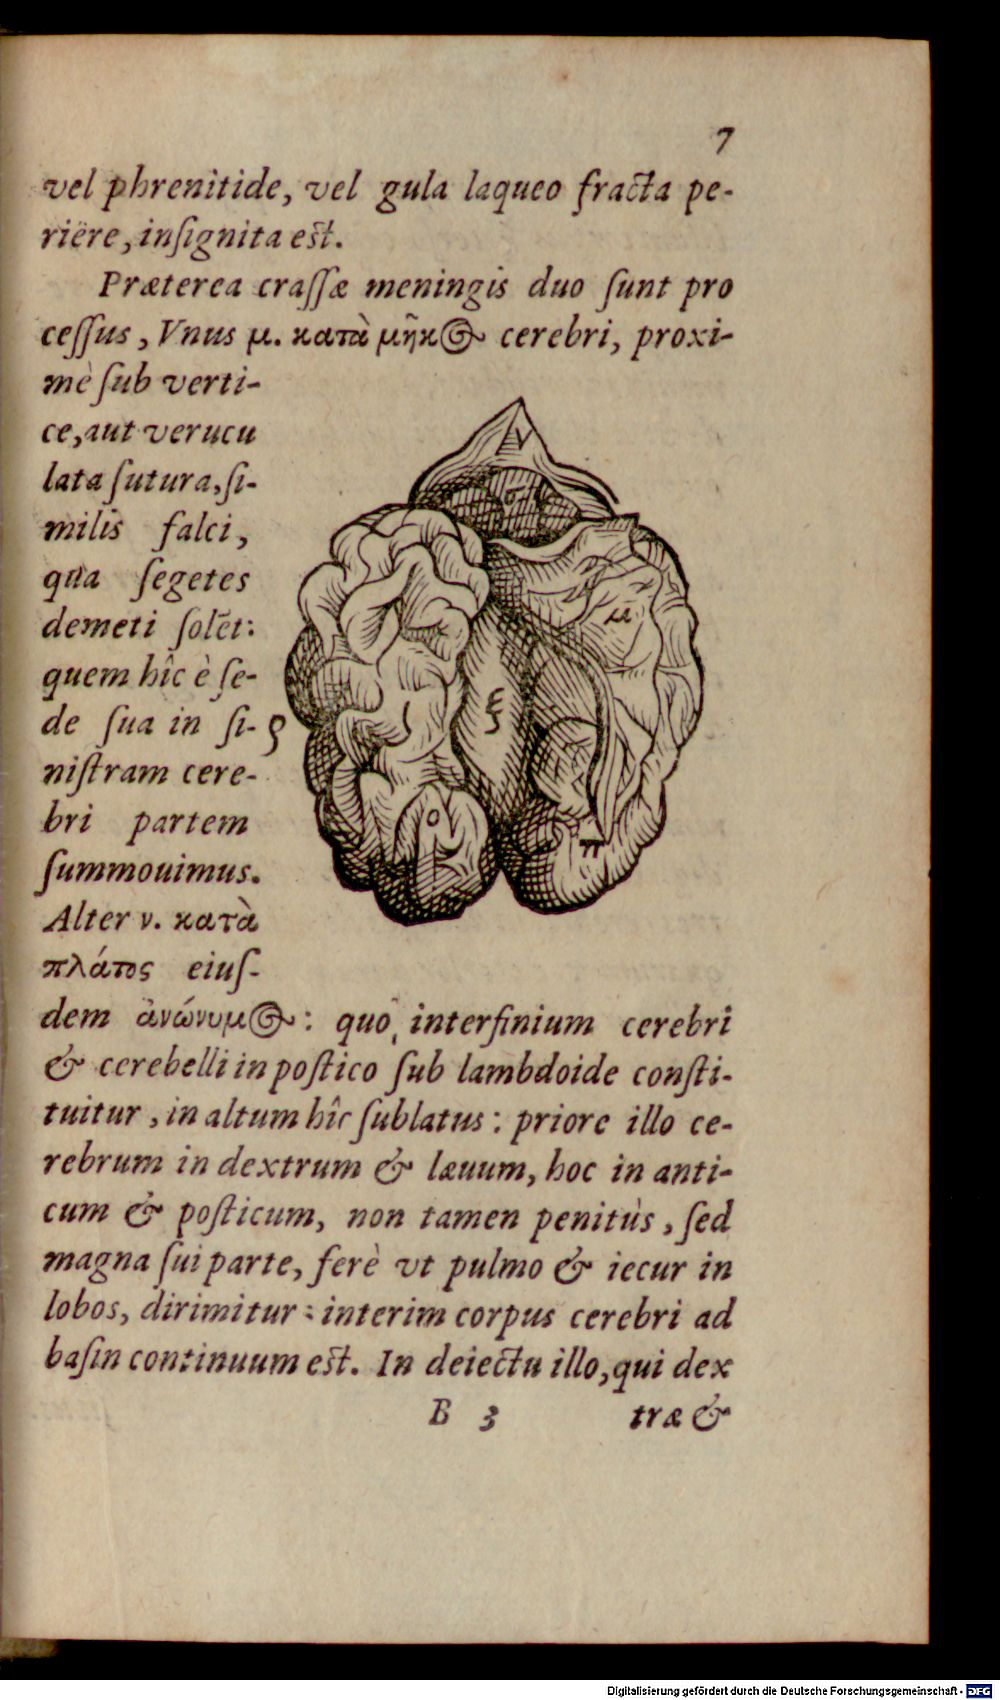 7
vel phrenitide, vel gula laqueo fracta pe-
riëre, inſignita eſt.
Præterea craſſæ meningis duo ſunt pro
ceſſus, Vnus μ. κατὰ μῆκος cerebri, proxi-
mè ſub verti-
ce, aut verucu
lata ſutura, ſi-
milis falci,
qua ſegetes
demeti ſolẽt:
quem hîc è ſe-
de ſua in ſi-
niſtram cere-
bri partem
ſummouimus.
Alter ν. κατὰ
πλάτος eiuſ-
dem ἀνώνυμος: quo interfinium cerebri
& cerebelli in poſtico ſub lambdoide conſti-
tuitur, in altum hîc ſublatus: priore illo ce-
rebrum in dextrum & læuum, hoc in anti-
cum & poſticum, non tamen penitùs, ſed
magna ſui parte, ferè vt pulmo & iecur in
lobos, dirimitur: interim corpus cerebri ad
baſin continuum eſt. In deiectu illo, qui dex
B 3 træ &
ν
σ
μ
ξ
ς
ο
π
Digitalisierung gefördert durch die Deutsche Forschungsgemeinschaft - DFG